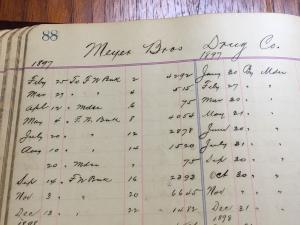 88
Meyer Bros Drug Co.
1897 1897
Feby 25 To F W Buck 2 4292 Jany 30 By Mdse
Mar 27 " " 4 515 Feby 27 "
Apl 12 " Mdse 6 75 Mar 30 "
May 4 " F. W. Buck 8 4054 May 31 "
July 20 " " 12 2878 June 30 "
Aug 10 " " 14 1520 July 31 "
20 " Mdse " 75 Sep 30 "
Sep 14 " F W Buck 16 2393 Oct 30 "
Nov 3 " " 20 6645 Nov "
Dec 13 " " 22 1482 Dec 31 "
1898 1898